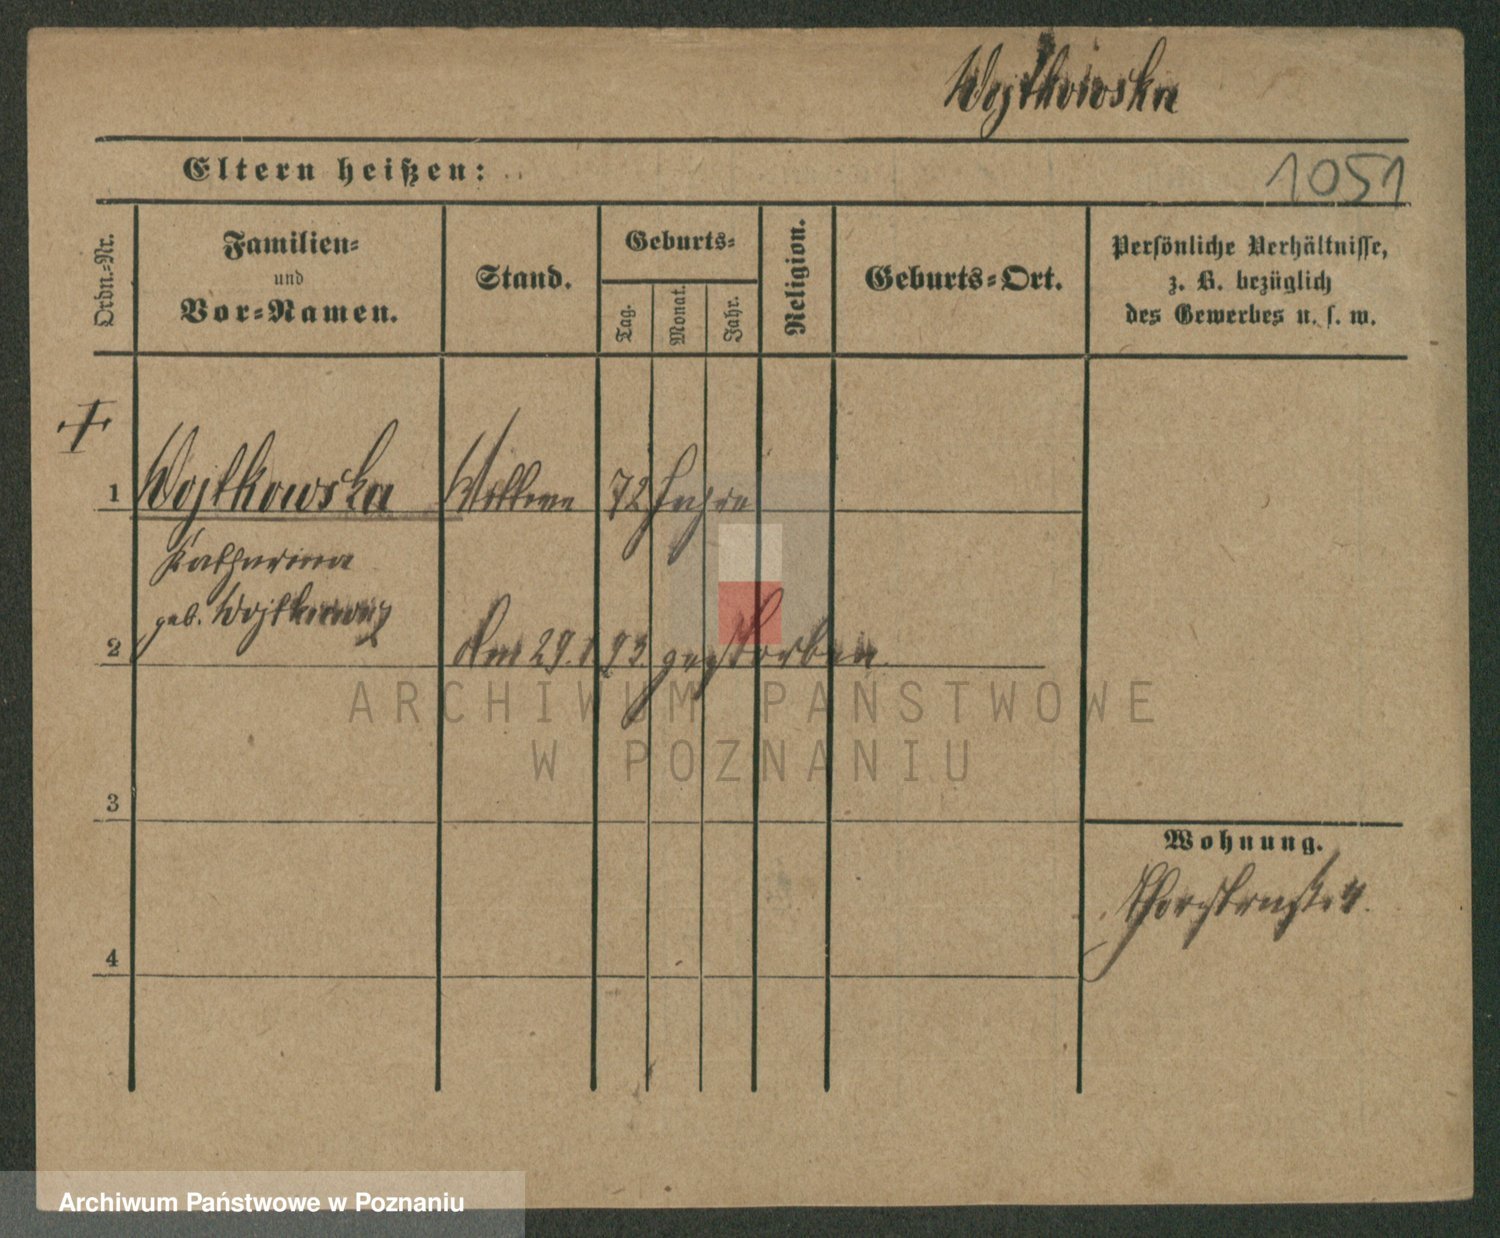 Wojtkowska
Eltern heißen:
1051
Ordn.-Nr.
Familien-
und
Vor-Namen.
Stand.
Geburts-
Tag.
Monat.
Jahr.
Religion.
Geburts-Ort.
Persönliche Verhältnisse,
z. B. bezüglich
des Gewerbes u. s. w.
1 Wojtkowska Wittwe 72 Jahre
Katharina
geb.
2 Am 29. 93 gestorben.
ARCHIWUM PAŃSTWOWE
W POZNANIU
3
Wohnung.
4
Archiwum Państwowe w Poznaniu